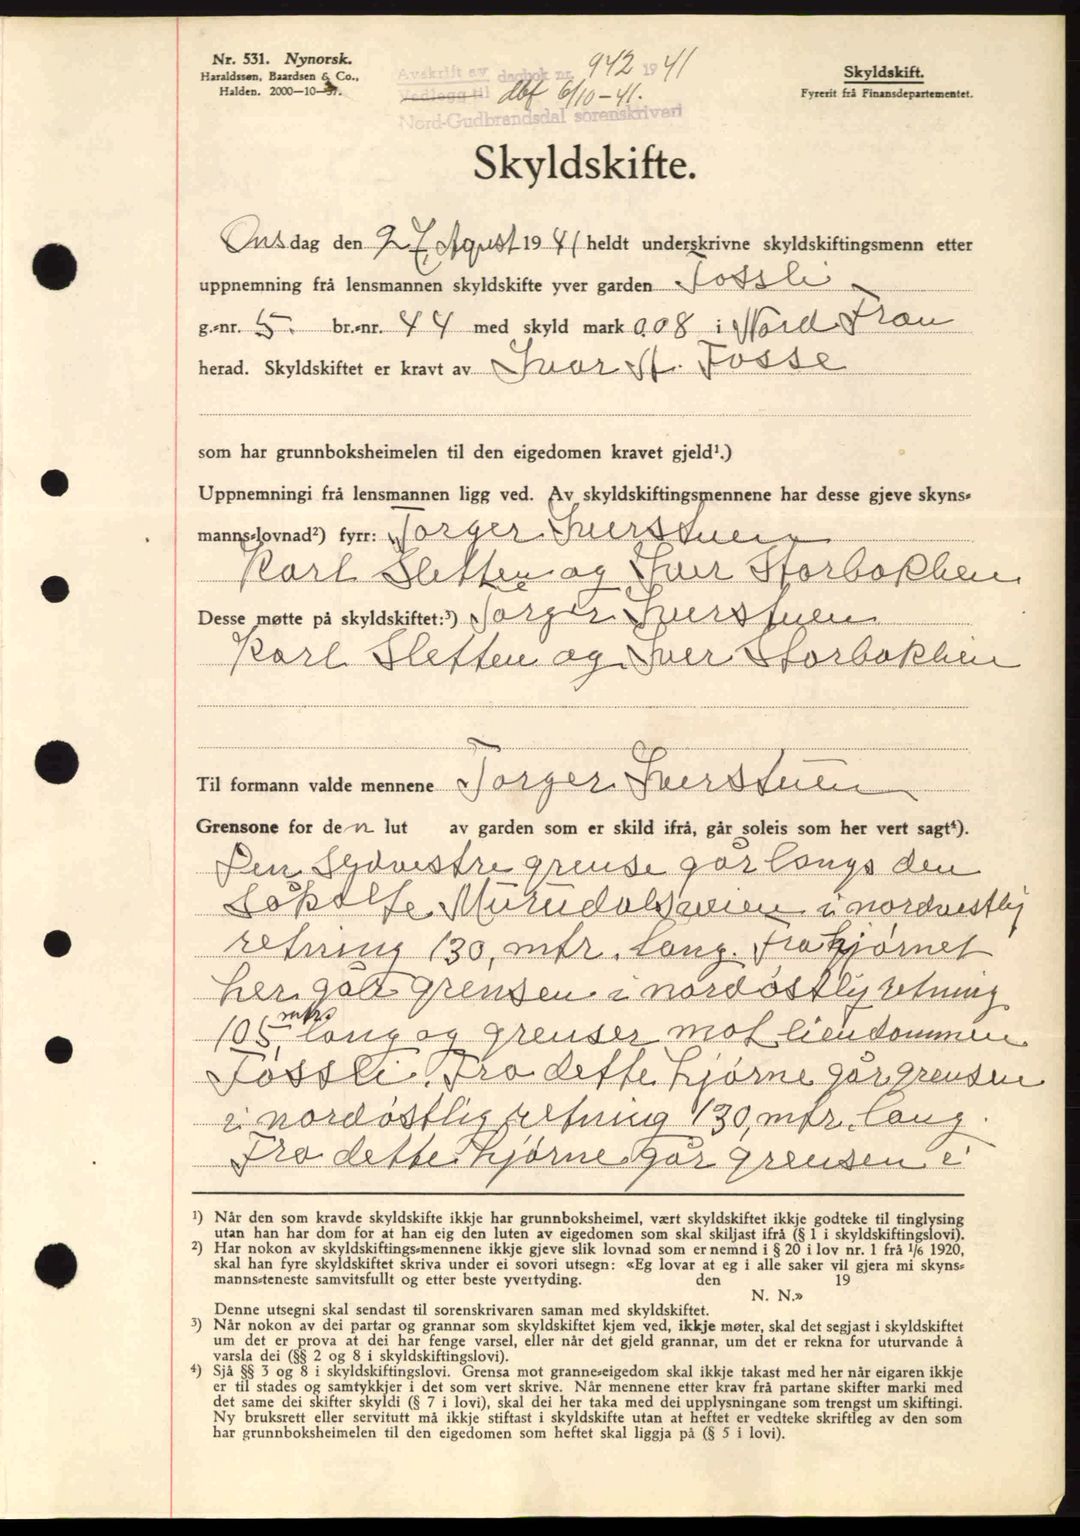 Nr. 531. Nynorsk.
Haraldssen, Baardsen & Co.,
Halden. 2000—10—37.
Avskrift av dagbok nr. 942 1941
Vedlegg til dbf 6/10-41.
Nord-Gudbrandsdal sorenskriveri
Skyldskift.
Fyrerit frå Finansdepartementet.
Skyldskifte.
Onsdag den 27 Agust 1941 heldt underskrivne skyldskiftingsmenn etter
uppnemning frå lensmannen skyldskifte yver garden Fossli
g.-nr. 5. br.-nr. 44 med skyld mark 0.08 i Nord Fron
herad. Skyldskiftet er kravt av Ivar A. Fosse
som har grunnboksheimelen til den eigedomen kravet gjeld¹.)
Uppnemningi frå lensmannen ligg ved. Av skyldskiftingsmennene har desse gjeve skyns-
manns-lovnad²) fyrr: Torger Iverstuen
Karl Sletten og Iver Storbakken
Desse møtte på skyldskiftet:³) Torger Iverstuen
Karl Sletten og Iver Storbakken
Til formann valde mennene Torger Iverstuen
Grensone for den lut av garden som er skild ifrå, går soleis som her vert sagt⁴).
Den Sydvestre grense går langs den
Såkalte Murudalsveien i nordvestlig
retning 130, mtr. lang. Fra hjørnet
her går grensen i nordøstlig retning
105 mtr. lang og grenser mot eiendommen
Fossli. Fra dette hjørne går grensen
i nordøstlig retning 130, mtr. lang.
Fra dette hjørne går grensen i
¹) Når den som kravde skyldskifte ikkje har grunnboksheimel, vært skyldskiftet ikkje godteke til tinglysing
utan han har dom for at han eig den luten av eigedomen som skal skiljast ifrå (§ 1 i skyldskiftingslovi).
²) Har nokon av skyldskiftings-mennene ikkje gjeve slik lovnad som er nemnd i § 20 i lov nr. 1 frå 1/6 1920,
skal han fyre skyldskiftet skriva under ei sovori utsegn: «Eg lovar at eg i alle saker vil gjera mi skyns-
manns-teneste samvitsfullt og etter beste yvertyding. den 19
N. N.»
Denne utsegni skal sendast til sorenskrivaren saman med skyldskiftet.
³) Når nokon av dei partar og grannar som skyldskiftet kjem ved, ikkje møter, skal det segjast i skyldskiftet
um det er prova at dei har fenge varsel, eller når det gjeld grannar, um det er rekna for uturvande å
varsla dei (§§ 2 og 8 i skyldskiftingslovi).
⁴) Sjå §§ 3 og 8 i skyldskiftingslovi. Grensa mot granne-eigedom skal ikkje takast med her når eigaren ikkje
er til stades og samtykkjer i det som vert skrive. Når mennene etter krav frå partane skifter marki med
det same dei skifter skyldi (§ 7 i lovi), skal dei her taka med dei upplysningane som trengst um skiftingi.
Ny bruksrett eller servitutt må ikkje stiftast i skyldskifte utan at heftet er vedteke skriftleg av den som
har grunnboksheimelen til den eigedomen som heftet skal liggja på (§ 5 i lovi).